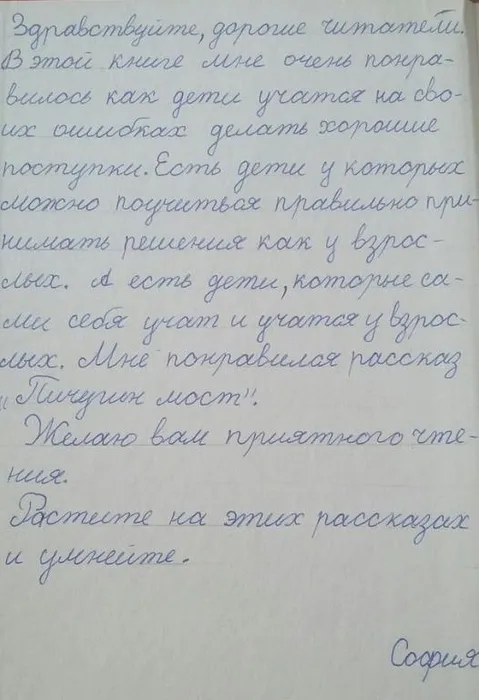 Здравствуйте, дорогие читатели.
В этой книге мне очень понра-
вилось как дети учатся на сво-
их ошибках делать хорошие
поступки. Есть дети у которых
можно поучиться правильно при-
нимать решения как у взрос-
лых. А есть дети, которые са-
ми себя учат и учатся у взрос-
лых. Мне понравился рассказ
"Пичугин мост".
Желаю вам приятного чте-
ния.
Растите на этих рассказах
и умнейте.
София